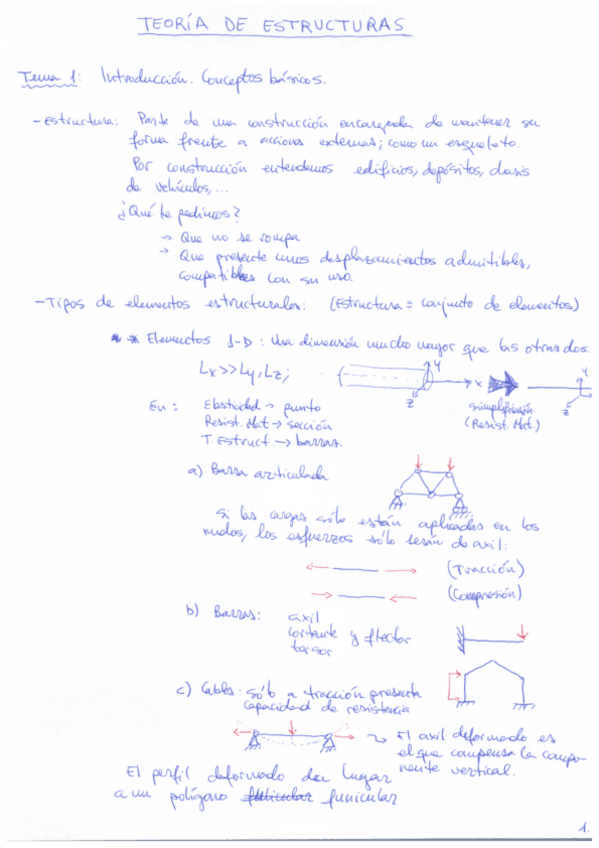 TEORÍA DE ESTRUCTURAS
Tema 1: Introducción. Conceptos básicos.
- Estructura: Parte de una construcción encargada de mantener su
forma frente a acciones externas; como un esqueleto.
Por construcción entendemos edificios, depósitos, chasis
de vehículos,...
¿Qué le pedimos?
→ Que no se rompa
→ Que presente unos desplazamientos admitibles,
compatibles con su uso.
- Tipos de elementos estructurales: (Estructura = conjunto de elementos)
* Elementos 1-D: Una dimensión mucho mayor que las otras dos.
Lx>>Ly,Lz;
y
x
z
y
z
simplificación
(Resist. Mat.)
En: Elasticidad → punto
Resist. Mat → sección
T. Estruct. → barras.
a) Barra articulada
Si las cargas sólo están aplicadas en los
nudos, los esfuerzos sólo serán de axil:
(Tracción)
(Compresión)
b) Barras: axil
cortante y flector
torsor
c) Cables: sólo a tracción presenta
capacidad de resistencia
→ El axil deformado es
el que compensa la compo-
nente vertical.
El perfil deformado da lugar
a un polígono funicular
1.